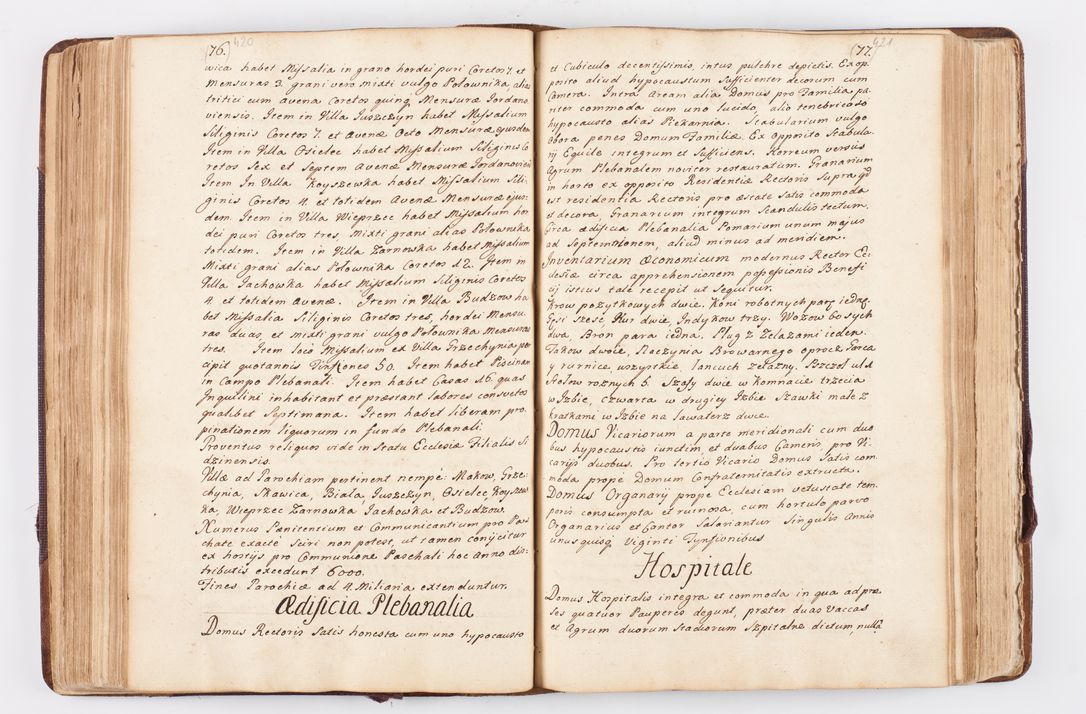 (76.) 420
wica habet Missalia in grano hordei puri Coretos 7. et
Mensuras 3. grani vero mixti vulgo Połownika, alias
tritici cum avena Coretos quinq Mensuræ Jordano
viensis. Item in Villa Juszczyn habet Missalium
Siliginis Coretos 7. et Avenæ Octo Mensuræ ejusdem
Item in Villa Osielec habet Missalium Siliginis Co
retos Sex et Septem Avenæ Mensuræ Jordanovien
Item In Villa Koyszewka habet Missalium Sili
ginis Coretos 4. et totidem Avenæ Mensuræ ejus
dem. Item in Villa Wieprzec habet Missalium hor
dei puri Coretos tres, Mixti grani alias Połownika
totidem. Item in Villa Zarnowka habet Missalium
Mixti grani alias Połownika Coretos 12. Item in
Villa Jachowka habet Missalium Siliginis Coretos
4. et totidem Avenæ. Item in Villa Budzow ha
bet Missalia Siliginis Coretos tres, hordei Mensu
ras duas, et mixti grani vulgo Połownika Mensuras
tres. Item loco Missalium ex Villa Grzechynia per
cipit quotannis 50. Item habet Piscinam
in Campo Plebanali. Item habet Casas 16. quas
Inquilini inhabitant et præstant labores consvetos
qualibet Septimana. Item habet liberam pro
pinationem liquorum in fundo Plebanali
Proventus reliquos vide in Statu Ecclesiæ Filialis Si
dzinensis.
Villæ ad Parochiam pertinent nempe: Makow, Grze
chynia, Skawica, Biała, Juszczyn, Osielec, Koyszow
ka, Wieprzec Zarnowka Jachowka et Budzow.
Numerus Pænitentium et Communicantium pro Pas
chate exacte Sciri non potest, ut tamen conijcitur
ex hostijs pro Communione Paschali hoc Anno dis
tributis excedunt 6000.
Fines Parochiæ ad 4. Miliaria extenduntur.
Ædificia Plebanalia
Domus Rectoris Satis honesta cum uno hypocausto
(77.) 421
et Cubiculo decentissimis, intus pulchre depictis. Ex op
posito aliud hypocaustum Sufficienter decorum cum
Camera. Intra Aream alia Domus pro Familia pa
riter commoda cum uno lucido, alio tenebricoso
hypocausto alias Piekarnia. Stabularium vulgo
Obora penes Domum Familiæ. Ex Opposito Stabula
rij Equile integrum et Sufficiens. Horreum versus
Agrum Plebanalem noviter restauratum. Granarium
in horto ex opposito Residentiæ Rectoris Supra qd
est residentia Rectoris pro æstate Satis commoda
et decora, Granarium integrum Scandulis tectum.
Circa ædificia Plebanalia Pomarium unum majus
ad Septemtrionem, aliud minus ad meridiem.
Inventarium Œconomicum modernus Rector Ec
clesiæ circa apprehensionem possessionis Benefi
cij istius tale recepit ut Sequitur.
Krow pozytkowych dwie. Koni robotnych parę iednę.
Gęsi Szesc Kur dwie, Indykow trzy. Wozow bosych
dwa, Bron para iedna, Pług z Zelazami ieden.
Takow dwoie, Naczynia Browarnego oprocz Garca
y rurnice, wszystkie. Lancuch zelazny. Pszczoł ul 1.
Stołow roznych 6. Szafy dwie w komnacie trzecia
w Izbie, czwarta w drugiey Izbie Szawki małe z
kratkami w Izbie na lawaterz dwie.
Domus Vicariorum a parte meridionali cum duo
bus hypocaustis iunctim, et duabus Cameris pro Vi
carijs duobus. Pro tertio Vicario Domus Satis com
moda prope Domum Confraternitatis extructa.
Domus Organarij prope Ecclesiam vetustate tem
poris consumpta et ruinosa, cum hortulo parvo
Organarius et Cantor Salariantur Singulis Annis
unusquisq Viginti Tynfionibus
Hospitale
Domus Hospitalis integra et commoda in qua ad præ
ses quatuor Pauperes degunt, præter duas Vaccas
et Agrum duorum Stadiorum Szpitalne dictum, nulla